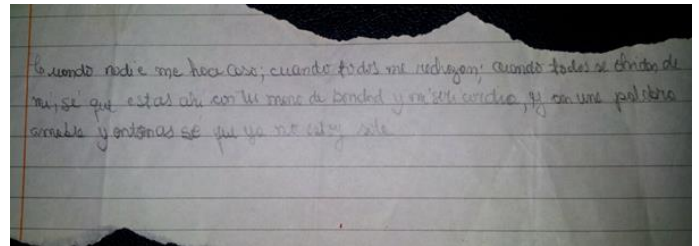 Cuando nadie me hace caso; cuando todos me rechazan; cuando todos se olvidan de
mi, sé que estas ahi con tu mano de bondad y misericordia, y con una palabra
amable y entonces sé que ya no estoy sola